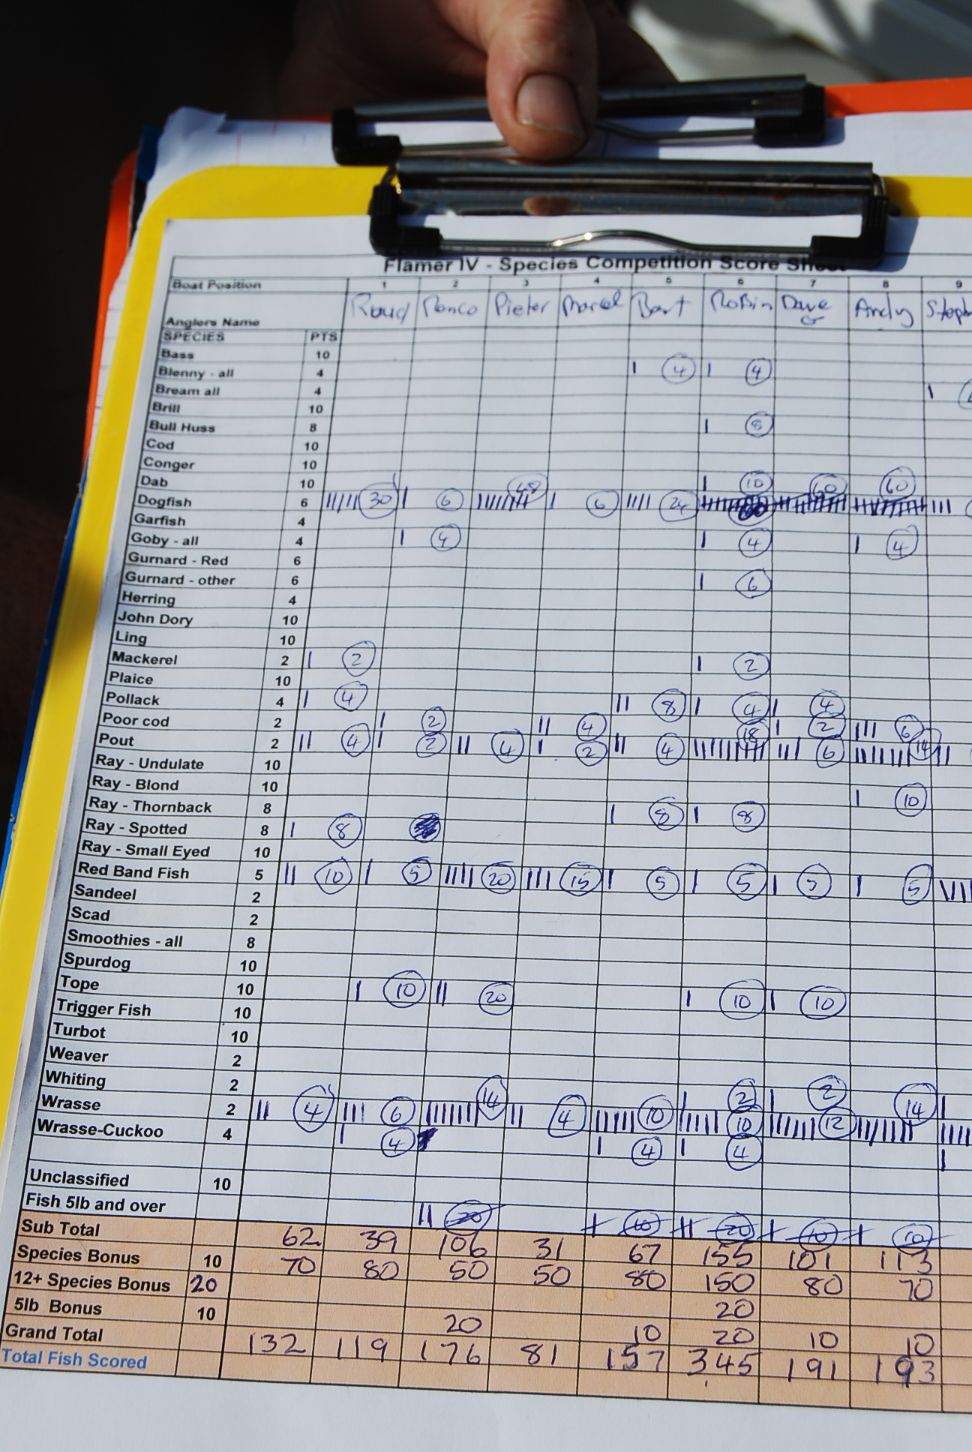 Flamer IV - Species Competition Score Sheet
Boat Position 1 2 3 4 5 6 7 8 9
Anglers Name Ruud Remco Pieter Marcel Bart Robin Dave G Andy
SPECIES PTS
Bass 10
Blenny - all 4 4 4
Bream all 4
Brill 10
Bull Huss 8 8
Cod 10
Conger 10
Dab 10 10
Dogfish 6 30 6 48 6 24 60 60
Garfish 4
Goby - all 4 4 4 4
Gurnard - Red 6
Gurnard - other 6 6
Herring 4
John Dory 10
Ling 10
Mackerel 2 2 2
Plaice 10
Pollack 4 4 8 4 4
Poor cod 2 2 4 2 6
Pout 2 4 2 4 2 4 18 6 14
Ray - Undulate 10
Ray - Blond 10 10
Ray - Thornback 8 8 8
Ray - Spotted 8 8
Ray - Small Eyed 10
Red Band Fish 5 10 5 20 15 5 5 5 5
Sandeel 2
Scad 2
Smoothies - all 8
Spurdog 10
Tope 10 10 20 10 10
Trigger Fish 10
Turbot 10
Weaver 2
Whiting 2 2 2
Wrasse 2 4 6 14 4 10 10 12 14
Wrasse-Cuckoo 4 4 4 4
Unclassified 10
Fish 5lb and over 20 10 20 10 10
Sub Total 62 39 106 31 67 155 101 113
Species Bonus 10 70 80 50 50 80 150 80 70
12+ Species Bonus 20 20
5lb Bonus 10 20 10 20 10 10
Grand Total 132 119 176 81 157 345 191 193
Total Fish Scored